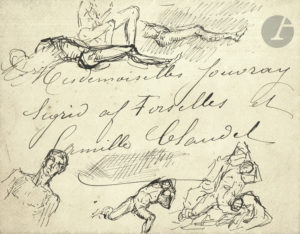 Mesdemoiselles Jouvray
Sigrid af Forselles et
Camille Claudel